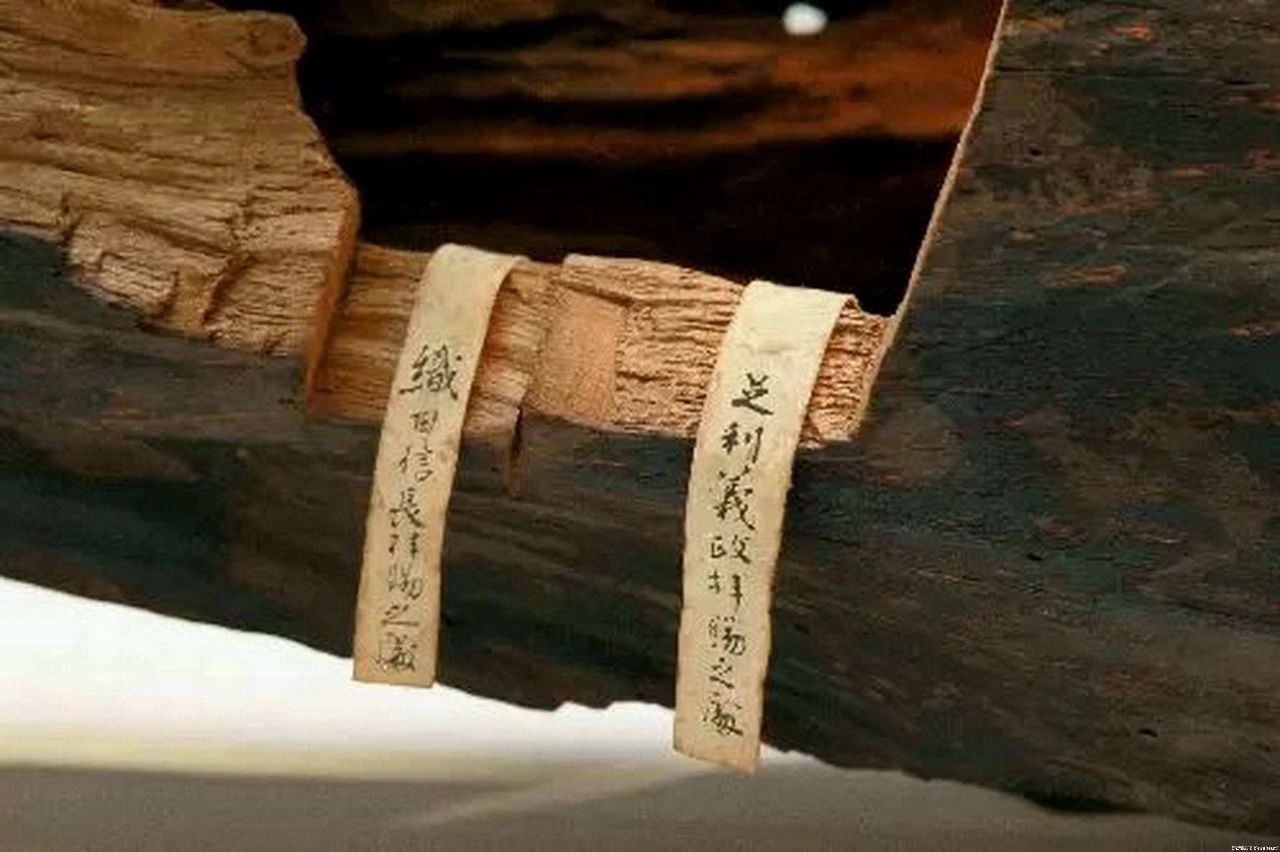 足利義政拝賜之處
織田信長拝賜之處